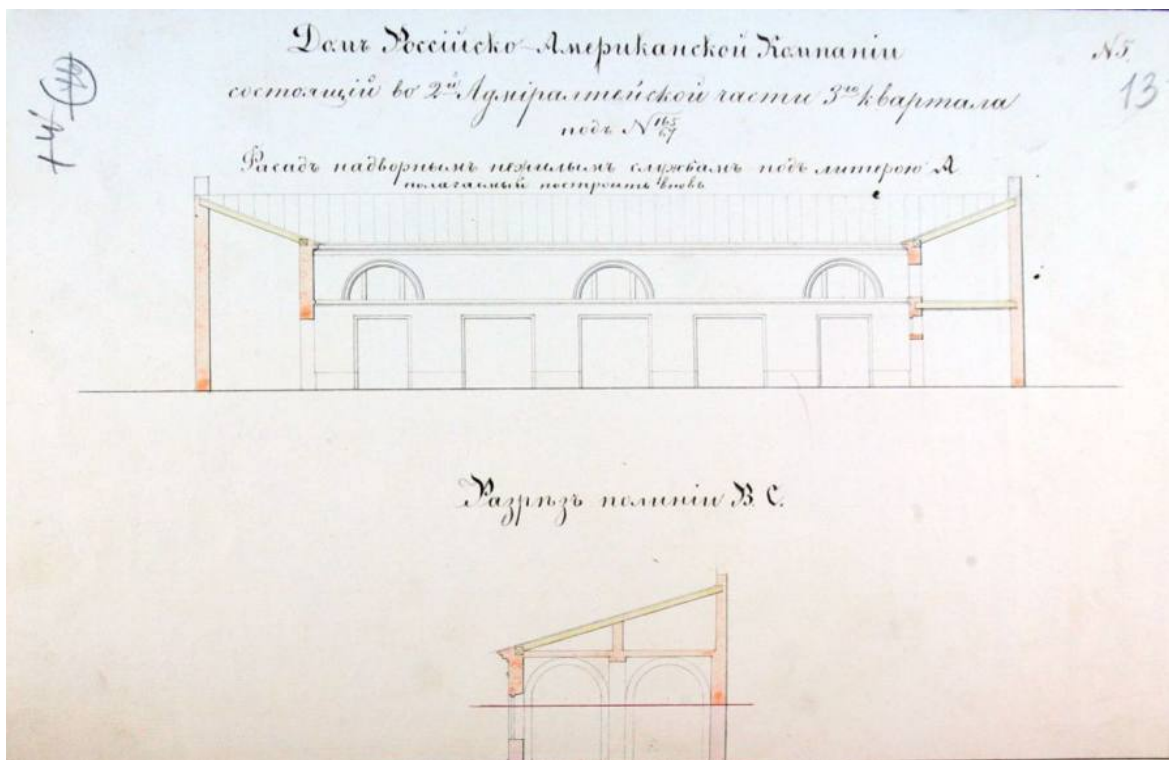 Домъ Россійско-Американской Компаніи
состоящій во 2й Адміралтейской части 3го квартала
подъ № 165/67
Фасадъ надворнымъ нежилымъ службамъ подъ литерою А
полагаемый построить вновь
№ 5.
13
Разрѣзъ по линіи В. С.